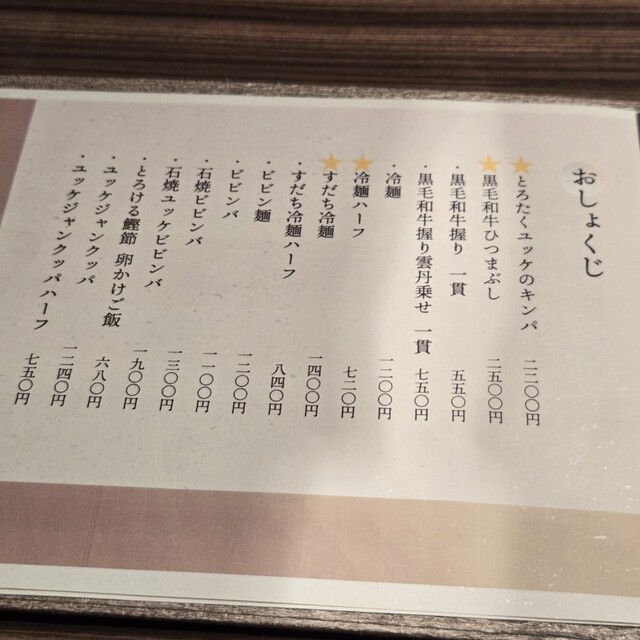 おしょくじ
★とろたくユッケのキンパ 一二〇〇円
★黒毛和牛ひつまぶし 二五〇〇円
・黒毛和牛握り 一貫 五五〇円
・黒毛和牛握り雲丹乗せ 一貫 七五〇円
・冷麺 一二〇〇円
★冷麺ハーフ 七二〇円
★すだち冷麺 一四〇〇円
・すだち冷麺ハーフ 八四〇円
・ビビン麺 一二〇〇円
・ビビンバ 一一〇〇円
・石焼ビビンバ 一三〇〇円
・石焼ユッケビビンバ 一九〇〇円
・とろける鰹節 卵かけご飯 六八〇円
・ユッケジャンクッパ 一二四〇円
・ユッケジャンクッパハーフ 七五〇円